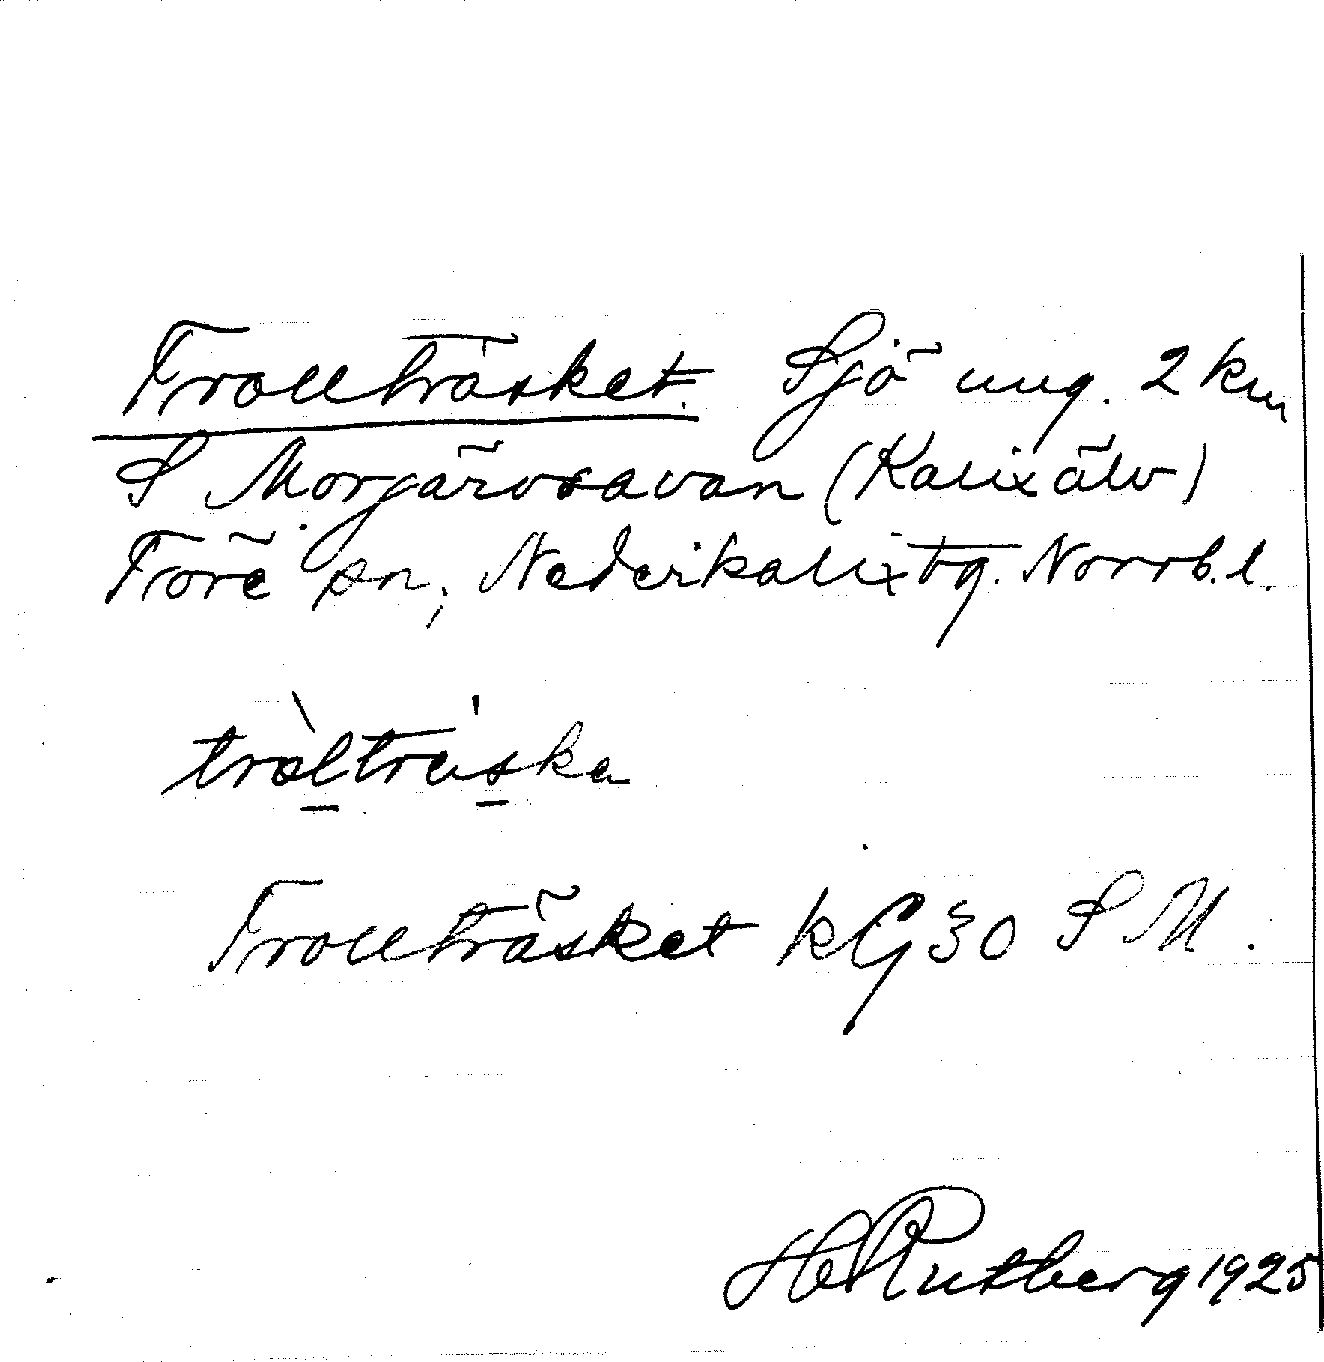 Trollträsket. Sjö ung. 2 km
S Morjärvsavan (Kalix älv)
Töre sn, Nederkalix tg. Norrb. l.
tròlträ́ska
Trollträsket k G 30 S M.
H Rutberg 1925